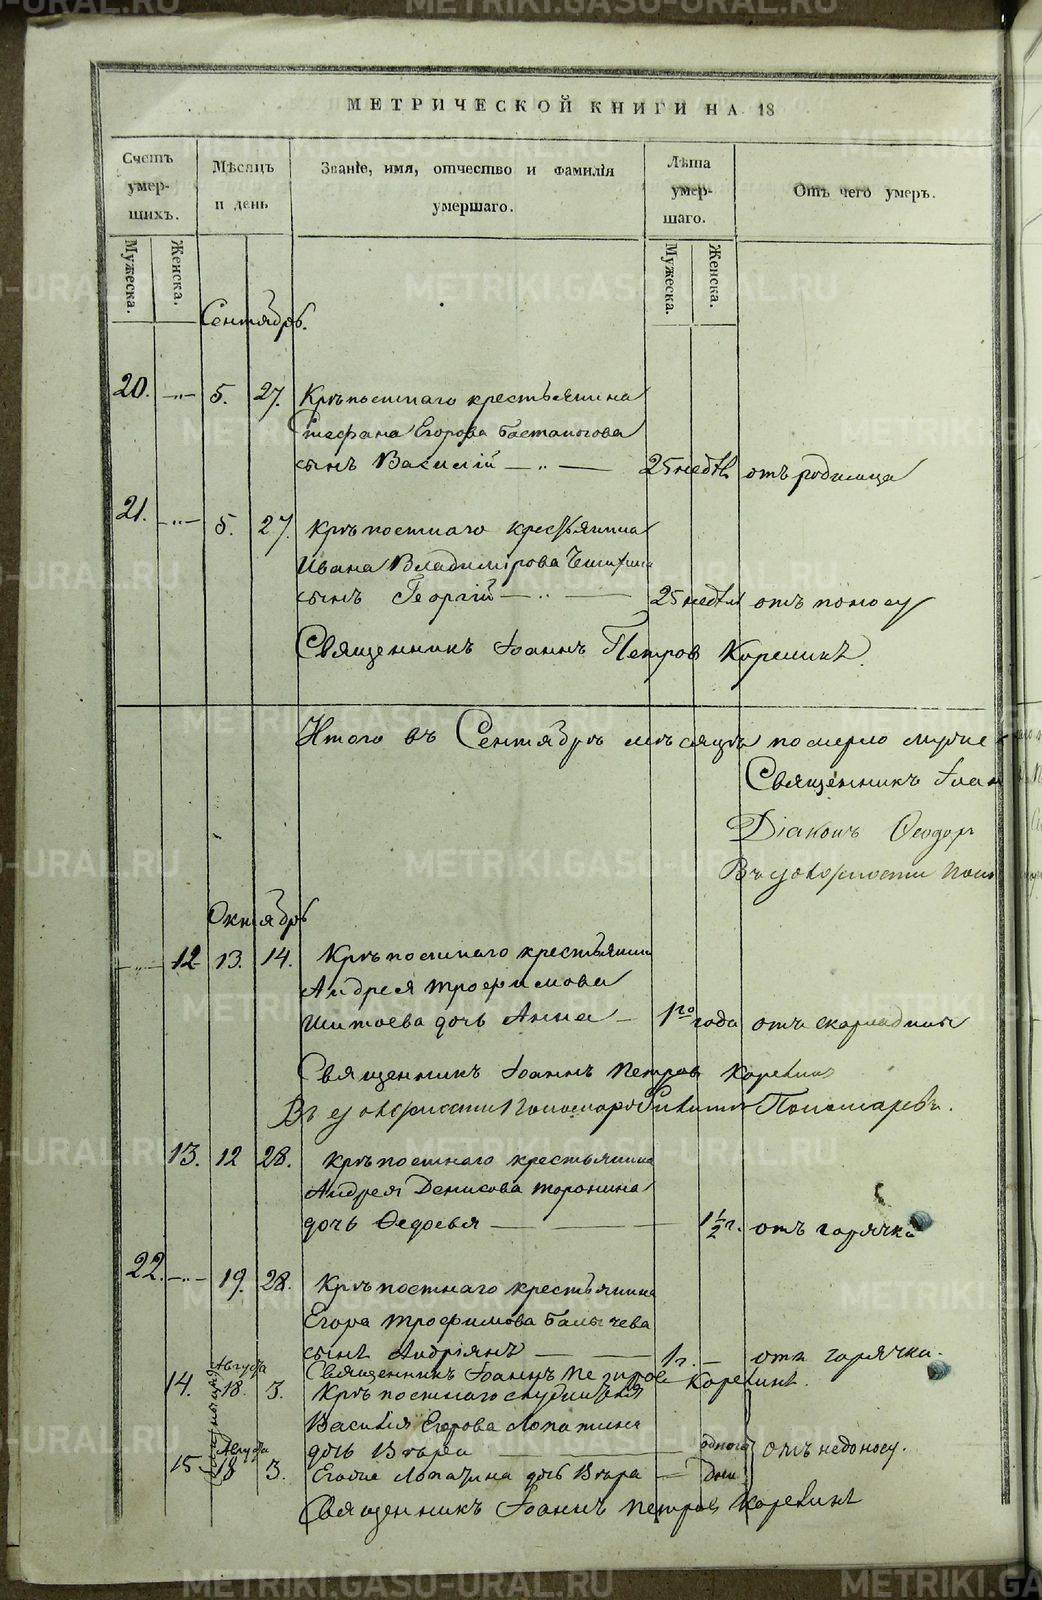 МЕТРИЧЕСКОЙ КНИГИ НА 18
Счетъ умер- щихъ.
Мѣсяцъ и день
Званіе, имя, отчество и фамилія умершаго.
Лѣта умер- шаго.
Отъ чего умеръ.
Мужеска. Женска. Мужеска. Женска.
Сентябрь.
20. 5. 27. Крѣпостнаго крестьянина
Стефана Егорова
сынъ Василій 25 недѣл отъ родимца
21. 5. 27. Крѣпостнаго крестьянина
Ивана Владимірова
сынъ Георгій 25 недѣл отъ поносу
Священникъ Іоаннъ Петровъ Корелинъ.
Итого въ Сентябрѣ мѣсяцѣ померло
Священникъ Іоан
Діаконъ Ѳеодоръ
Октябрь
12 13. 14. Крѣпостнаго крестьянина
Андрея Трофимова
Шитоева дочь Анна 1го года отъ скарлатины
Священникъ Іоаннъ Петровъ Корелинъ
Пономарь Пономаревъ.
13. 12 28. Крѣпостнаго крестьянина
Андрея Денисова Торонина
дочь Ѳедосья 1½ г. отъ горячки
22. 19. 28. Крѣпостнаго крестьянина
Егора Трофимова Балычева
сынъ Андріянъ 1г. отъ горячки.
Священникъ Іоаннъ Петровъ Корелинъ.
Августа
14. 18. 3. Крѣпостнаго
Василія Егорова Лопатина
дочь Вѣра одного отъ недоносу.
Августа
15. 18 3. Егоже Лопатина дочь Вѣра дни
Священникъ Іоаннъ Петровъ Корелинъ
METRIKI.GASO-URAL.RU